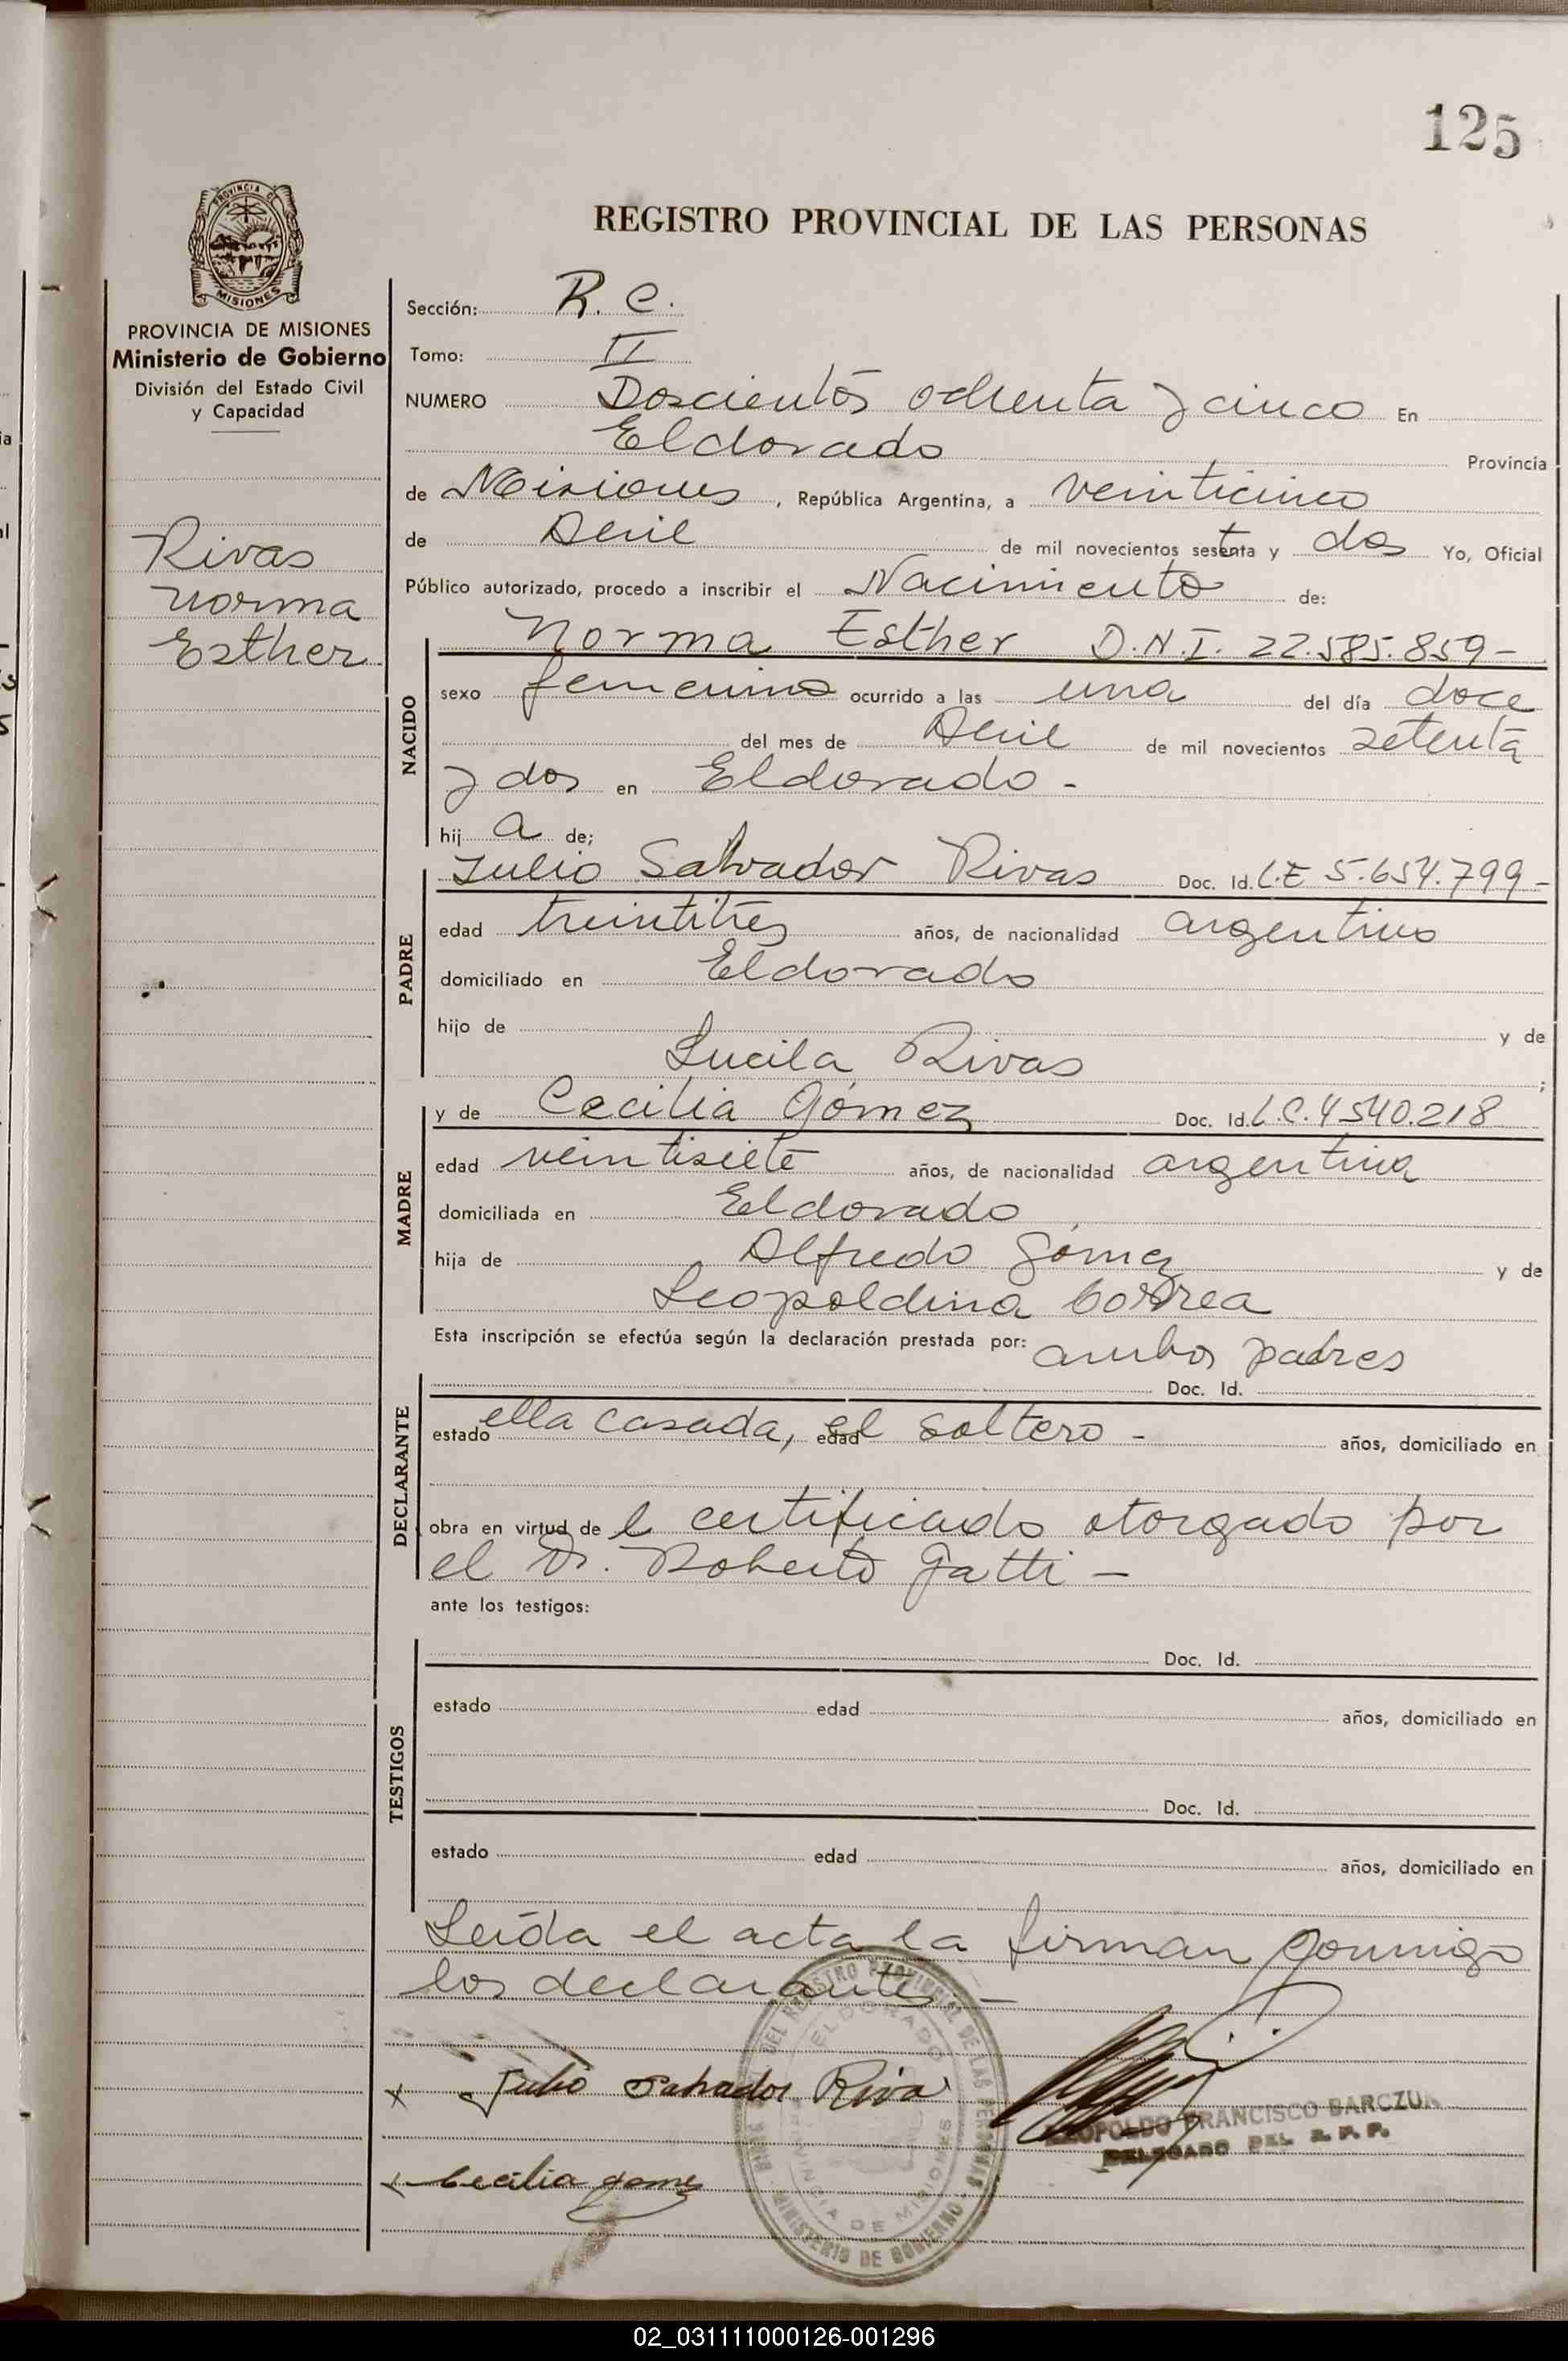 125
REGISTRO PROVINCIAL DE LAS PERSONAS
PROVINCIA DE MISIONES
PROVINCIA DE MISIONES
Ministerio de Gobierno
División del Estado Civil
y Capacidad
Rivas
Norma
Esther
Sección: R. C.
Tomo: II
NUMERO Doscientos ochenta y cinco En
Eldorado Provincia
de Misiones, República Argentina, a veinticinco
de Abril de mil novecientos setenta y dos Yo, Oficial
Público autorizado, procedo a inscribir el Nacimiento de:
NACIDO
Norma Esther D.N.I. 22.585.859-
sexo femenino ocurrido a las una del día doce
del mes de Abril de mil novecientos setenta
y dos en Eldorado -
hij a de;
PADRE
Julio Salvador Rivas Doc. Id. L.E 5.654.799-
edad treintitres años, de nacionalidad argentino
domiciliado en Eldorado
hijo de y de
Lucila Rivas ;
MADRE
y de Cecilia Gómez Doc. Id. L.C. 4540.218
edad veintisiete años, de nacionalidad argentina
domiciliada en Eldorado
hija de Alfredo Gómez y de
Leopoldina Correa
Esta inscripción se efectúa según la declaración prestada por: ambos padres
DECLARANTE
Doc. Id.
estado ella casada, edad el soltero - años, domiciliado en
obra en virtud de l certificado otorgado por
el Dr. Roberto Gatti -
ante los testigos:
TESTIGOS
Doc. Id.
estado edad años, domiciliado en
Doc. Id.
estado edad años, domiciliado en
Leída el acta la firman conmigo
los declarantes. -
x Julio Salvador Riva
LEOPOLDO FRANCISCO BARCZUK
DELEGADO DEL R. P. P.
x Cecilia gomez
DEL REGISTRO PROVINCIAL DE LAS PERSONAS
ELDORADO
PROVINCIA DE MISIONES
MINISTERIO DE GOBIERNO
02_031111000126-001296